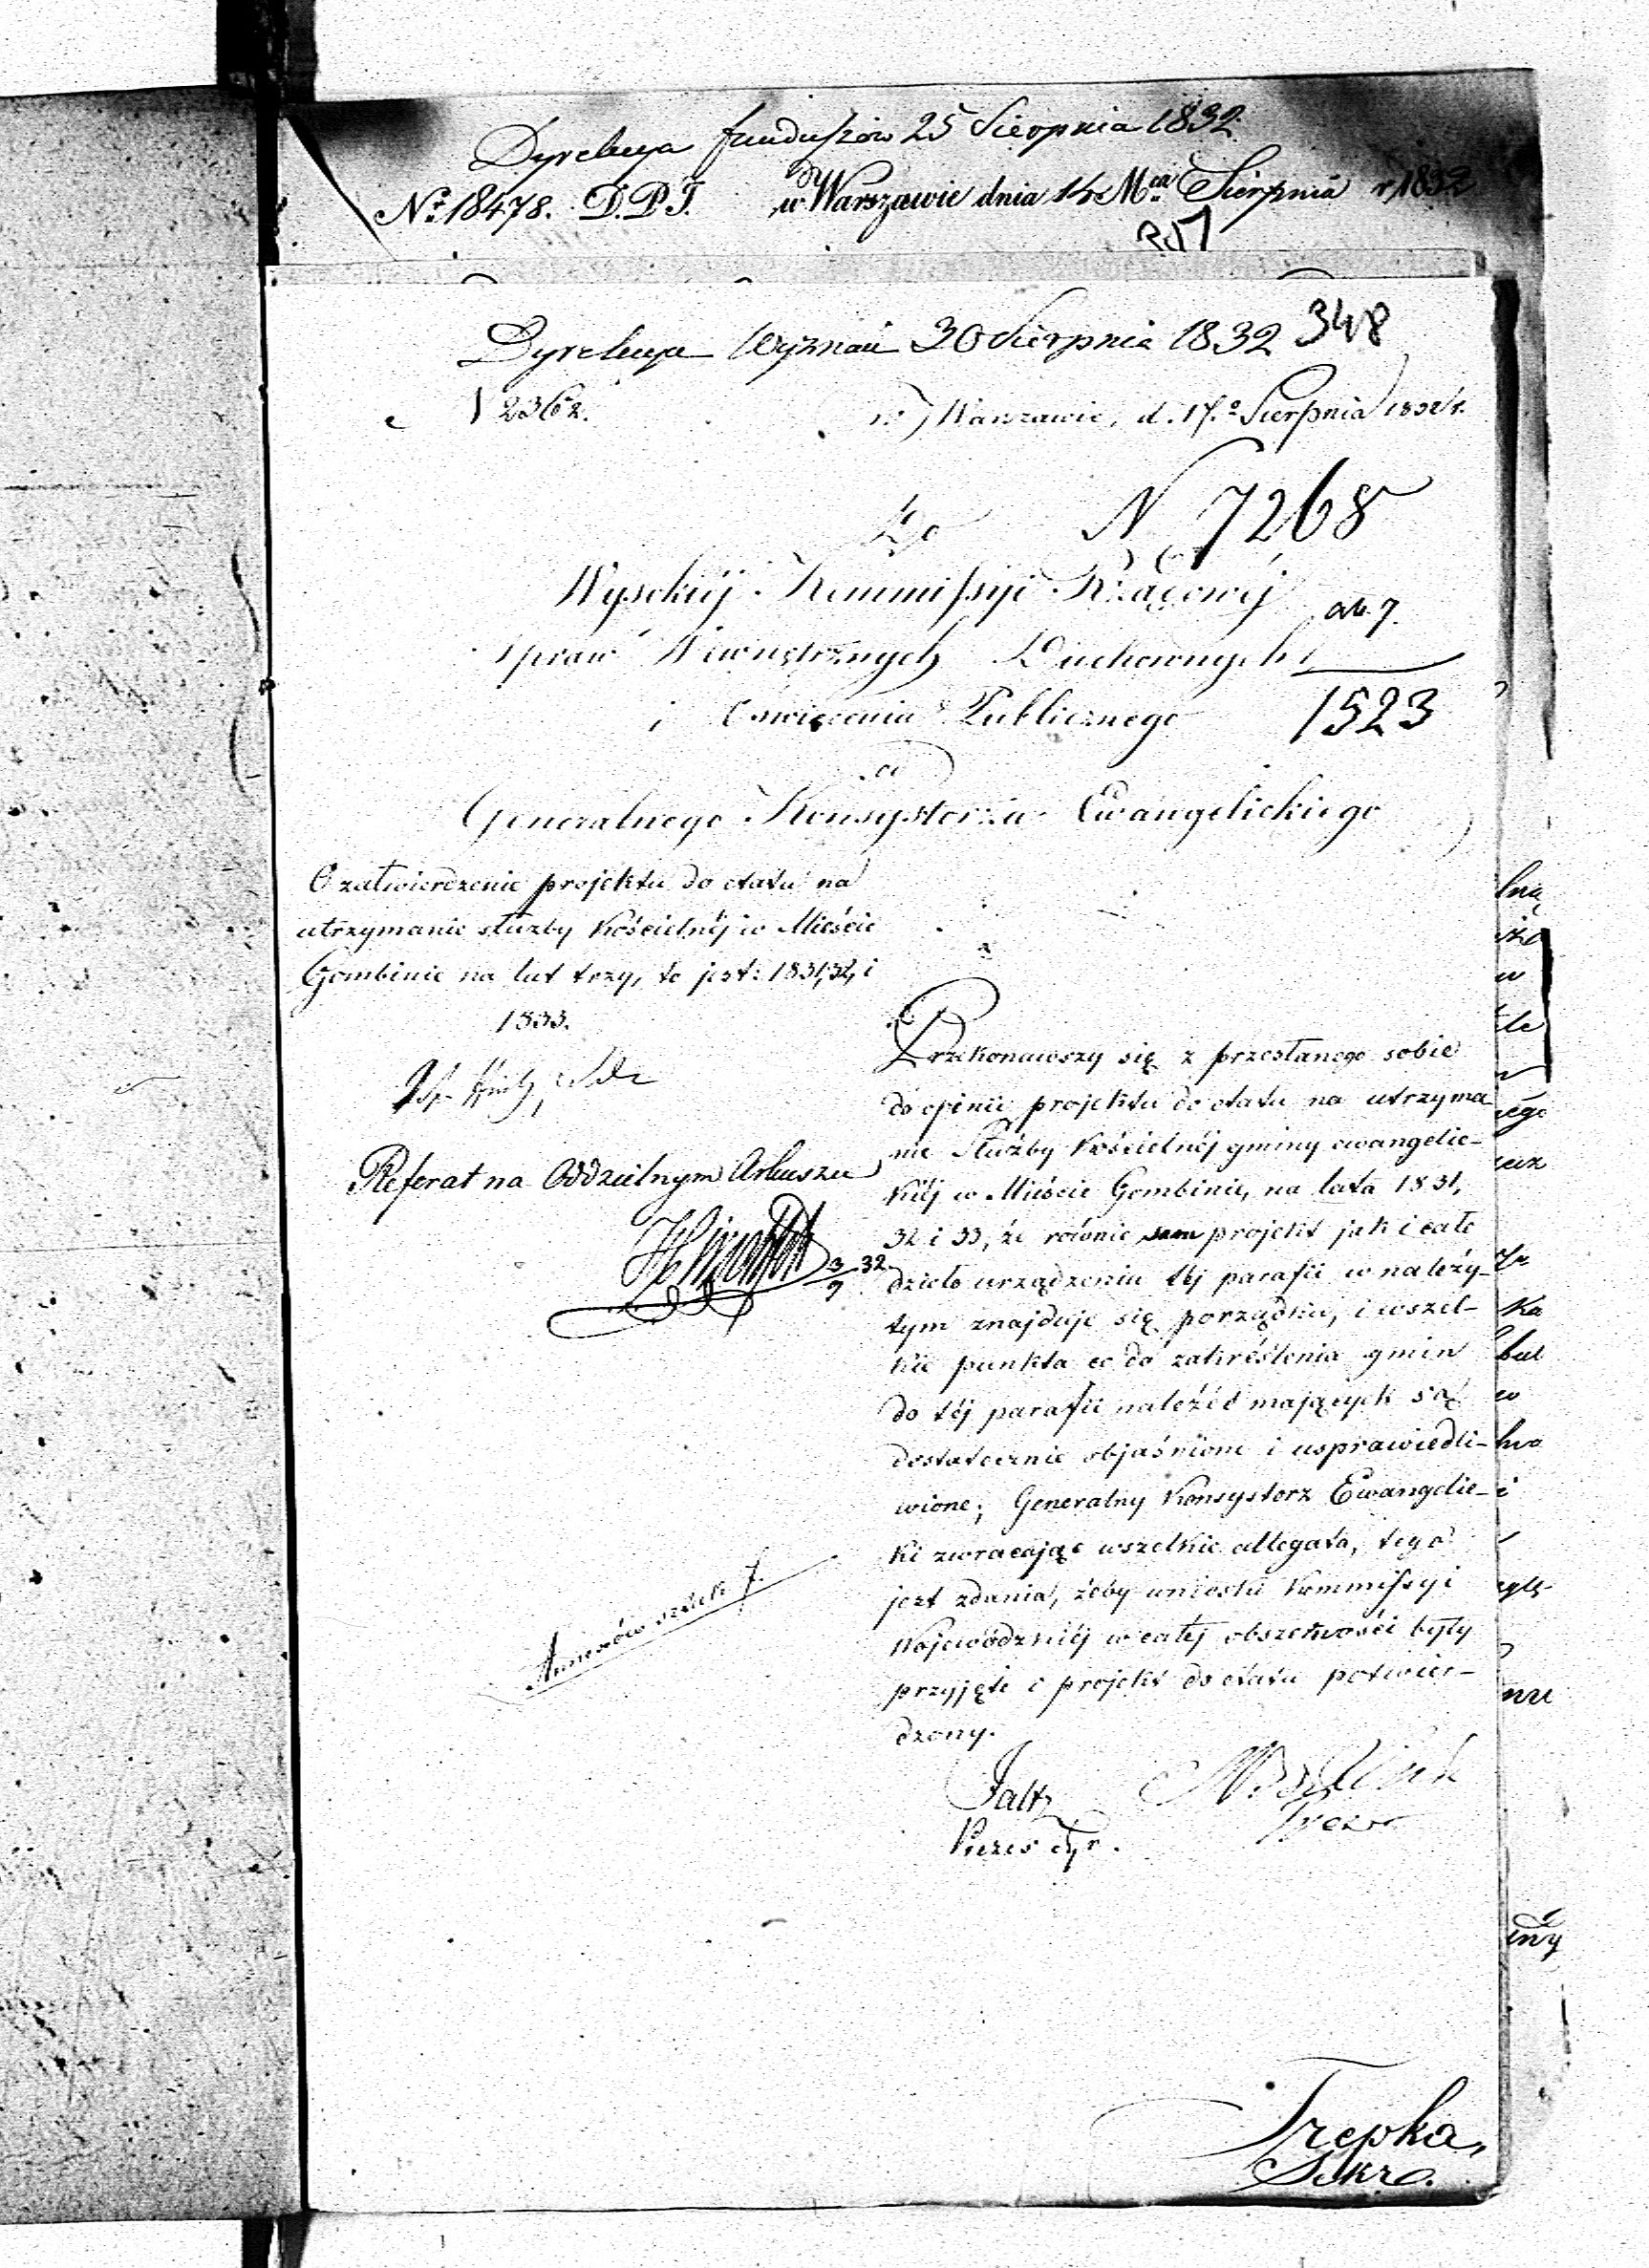 Dyrekcya funduszów 25 Sierpnia 1832
Nº 18478. D.P.J. w Warszawie dnia 14 Mca Sierpnia r 1832
Dyrekcya Wyznań 30 Sierpnia 1832 348
N 2362. w Warszawie, d. 17.º Sierpnia 1832 r.
Do N 7268
Wysokiéj Kommissyi Rządowéj
Spraw Wewnętrznych Duchownych
i Oświecenia Publicznego 1523
od
Generalnego Konsystorza Ewangelickiego
O zatwierdzenie projektu do etatu na
utrzymanie służby Kościelnéj w Mieście
Gombinie na lat trzy, to jest: 1831, 32, i
1833.
Referat na Oddzielnym Arkuszu
3/9 32
Przekonawszy się z przesłanego sobie
do opinii projektu do etatu na utrzyma
nie Służby Kościelnéj gminy ewangelic-
kiéj w Mieście Gombinie, na lata 1831,
32 i 33, że równie sam projekt jak i całe
dzieło urządzenia téj parafii w należy-
tym znajduje się porządku, i wszel-
kie punkta co do zakreślenia gmin
do téj parafii należéć mających są
dostatecznie objaśnione i usprawiedli-
wione; Generalny Konsystorz Ewangelic-
ki zwracając wszelkie allegata, tego
jest zdania, żeby wnioski Kommissyi
Wojewódzkiéj w całej obszerności były
przyjęte i projekt do etatu potwier-
dzony.
Annexów sztuk 7.
Jaltz
Vicezes Dyr.
Prezes
Trepka,
Sekr.